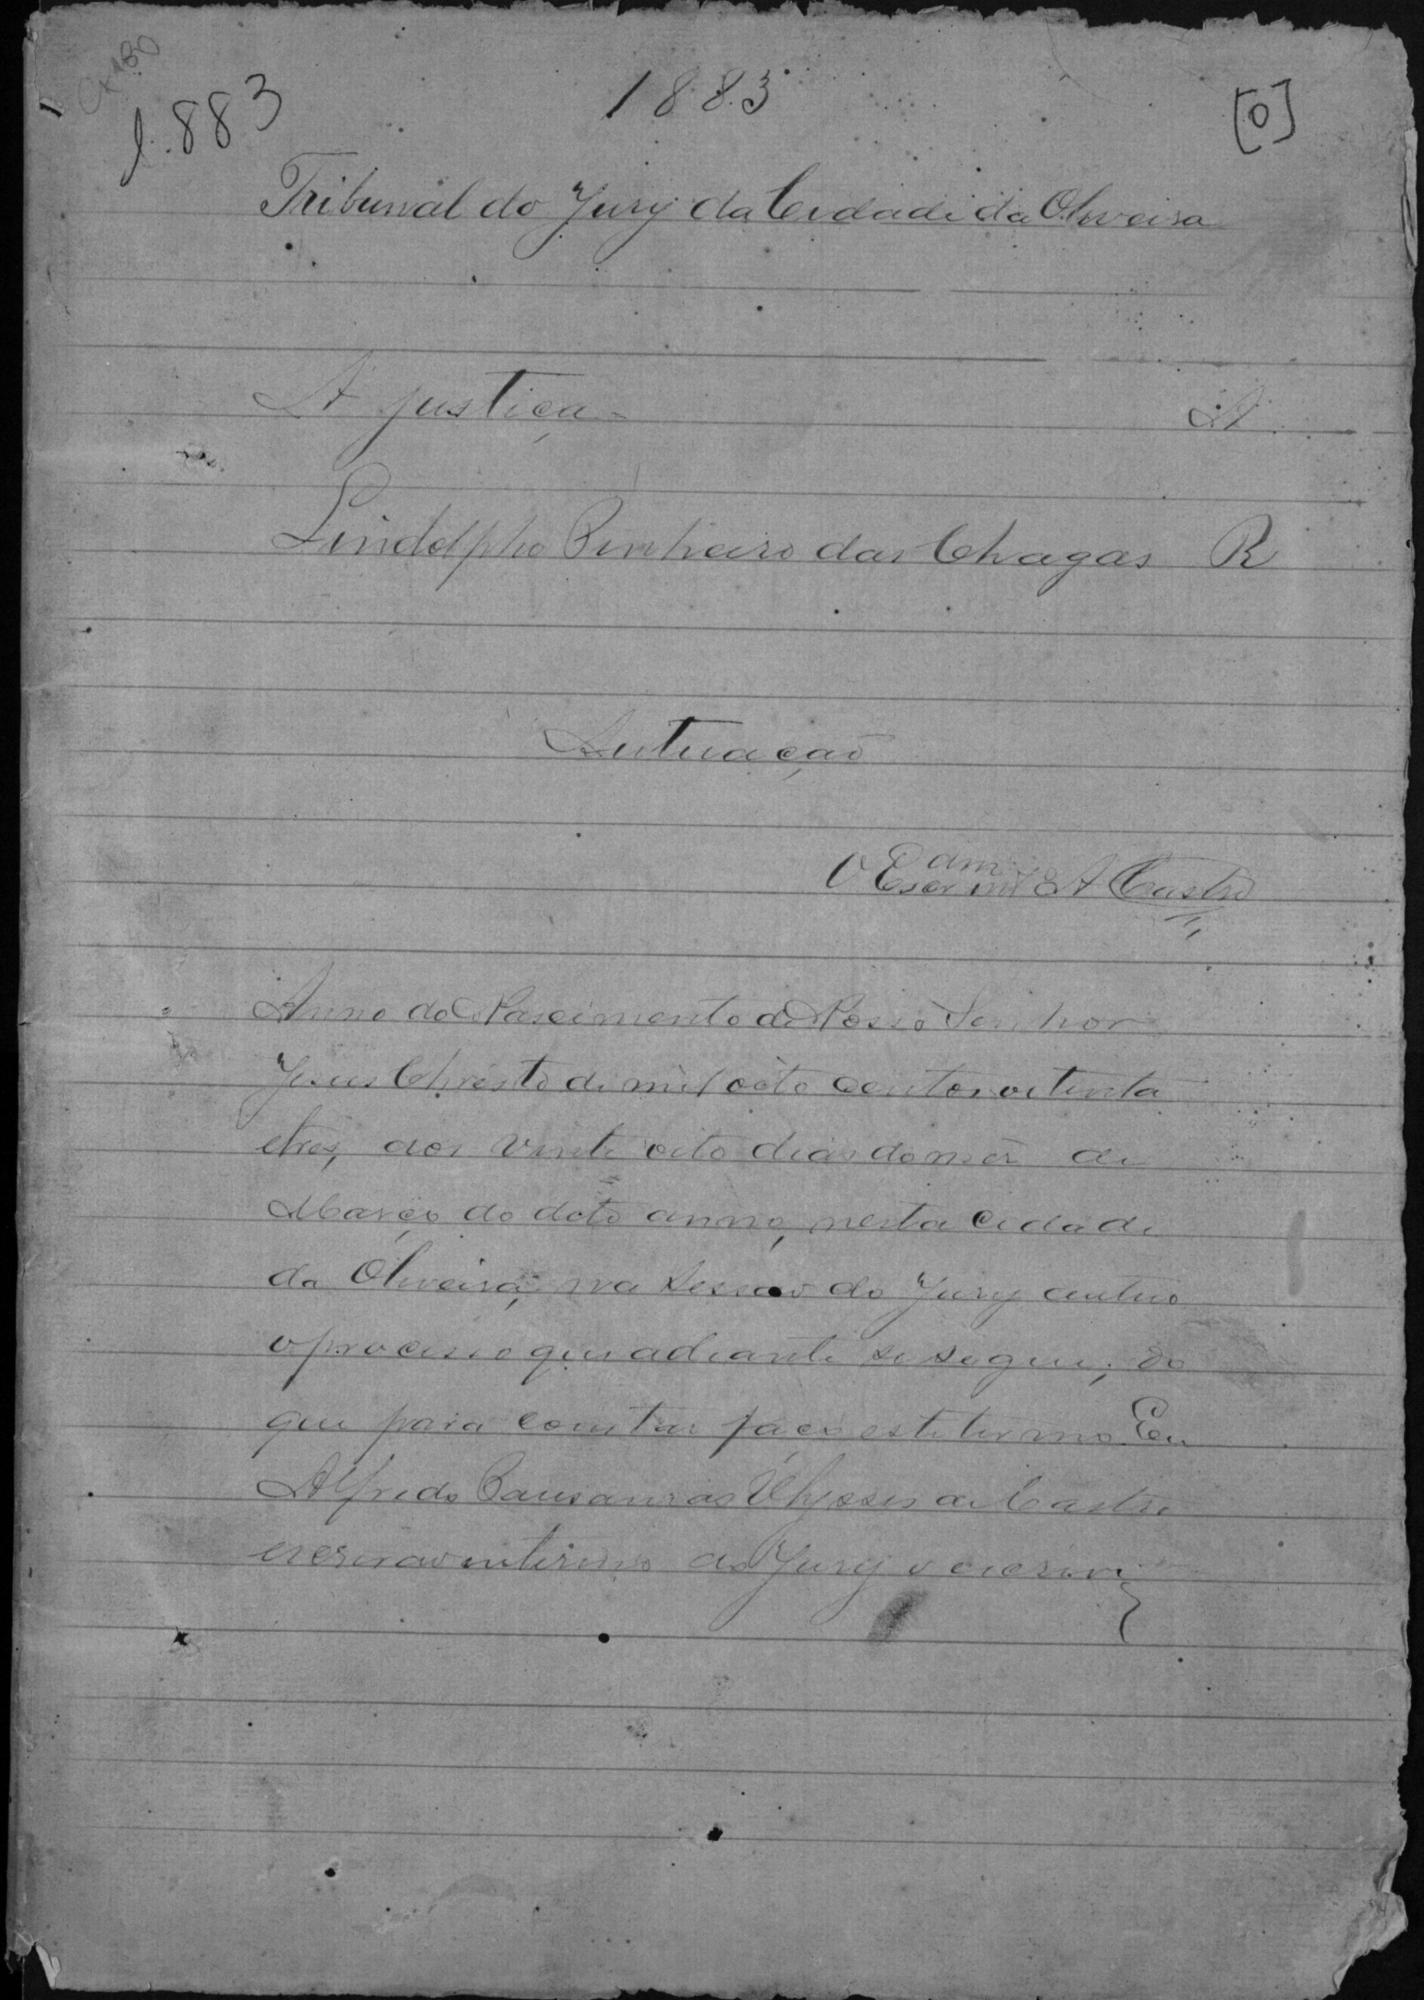 1883
1.883
[0]
Tribunal do Jury da Cidade da Oliveira
A justiça A
Lindolpho Pinheiro das Chagas R
Autuação
O Escram int.º A Castro
Anno do Nascimento de Nosso Senhor
Jesus Christo de mil oito centos oitenta
etres, aos vinte oito dias do mez de
Março do dito anno, nesta cidade
da Oliveira, na Sessão do Jury autuo
o processo que adiante se segue; do
que para constar faço este termo. Eu
Alfredo Pausanias Ulysses de Castro
escrivão interino do Jury o escrevi